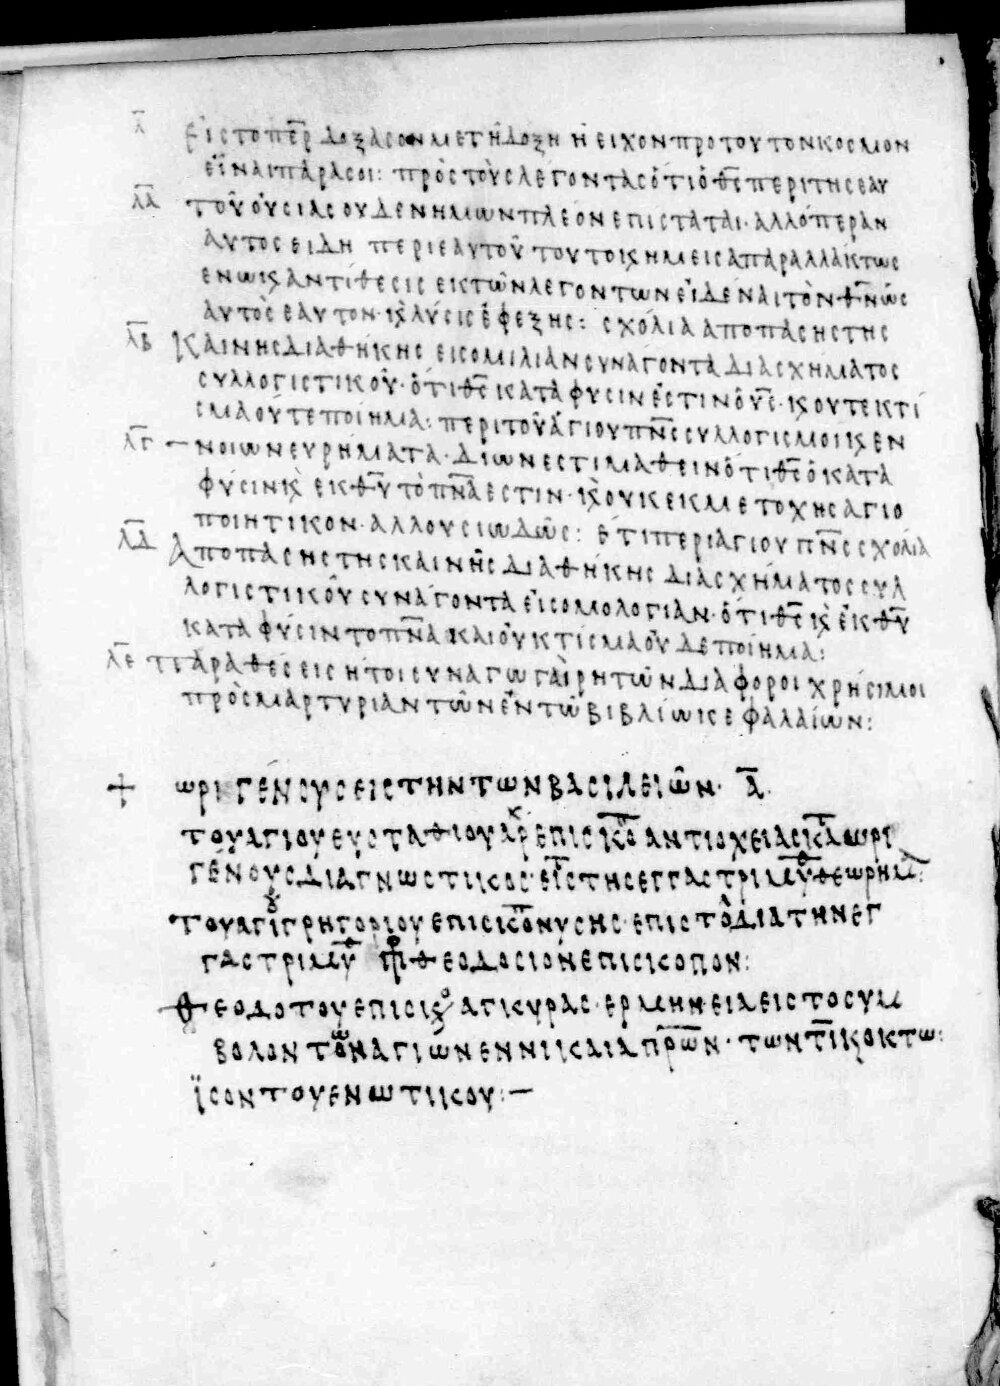 λ̅ εἰς τὸ πε̅ρ δόξασόν με τῆ δόξη ἡ εἶχον πρὸ τοῦ τὸν κόσμον
εἶναι παρὰ σοί: πρὸς τοὺς λέγοντας ὅτι ὁ θ̅ς περὶ τῆς ἑαυ
λ̅α̅ τοῦ οὐσίας οὐδὲν ἡμῶν πλέον ἐπίσταται· ἀλλ' ὅπερ ἂν
αὐτὸς εἰδῆ περὶ ἑαυτοῦ τοῦτο κ ἡμεῖς ἀπαραλλάκτως
ἐν ὧ κ ἀντίθεσις ἐκ τῶν λεγόντων εἰδέναι τὸν θ̅ν ὡς
αὐτὸς ἑαυτόν· κ λύσις ἐφεξῆς: σχόλια ἀπὸ πάσης τῆς
λ̅β̅ Καινῆς διαθήκης εἰς ὁμιλίαν συνάγοντα διὰ σχήματος
συλλογιστικοῦ· ὅτι θ̅ς κατὰ φύσιν ἐστὶν ὁ υ̅ς· κ οὔτε κτί
σμα οὔτε ποίημα: περὶ τοῦ ἁγίου πν̅ς συλλογισμοὶ κ ἐν
λ̅γ̅ νοιῶν εὑρήματα· δι' ὧν ἐστι μαθεῖν ὅτι θ̅ς ὁ κατὰ
φύσιν κ ἐκ θ̅υ τὸ πν̅α ἐστίν· κ οὐκ ἐκ μετοχῆς ἁγιο
ποιητικόν· ἀλλ' οὐσιωδῶς: ἔτι περὶ ἁγίου πν̅ς σχόλια
λ̅δ̅ Ἀπὸ πάσης τῆς καινῆς διαθήκης διὰ σχήματος συλ
λογιστικοῦ συνάγοντα εἰς ὁμολογίαν· ὅτι θ̅ς κ ἐκ θ̅υ
κατὰ φύσιν τὸ πν̅α καὶ οὐ κτίσμα οὐδὲ ποίημα:
λ̅ε̅ Παραθέσεις ἤτοι συναγωγαὶ ῥητῶν διάφοροι χρήσιμοι
πρὸς μαρτυρίαν τῶν ἐν τῶ βιβλίω κεφαλαίων:
+ ὠριγένους εἰς τὴν τῶν βασιλειῶν· α̅·
τοῦ ἁγίου εὐσταθίου ἀρ̅κ ἐπισκό ἀντιοχείας κ̅α̅ ὠρι
γένους διαγνωστικὸς· εἰς τῆς ἐγγαστριμύθ θεώρημα:
τοῦ ἁγί γρηγορίου ἐπισκό νύσης· ἐπιστο διὰ τὴν ἐγ
γαστριμυθ πρ θεοδόσιον ἐπίσκοπον:
Θεοδότου ἐπισκ ἀγκύρας· ἑρμηνεία εἰς τὸ σύμ
βολον τῶν ἁγίων ἐν νικαία πρ̅ων· τῶν τ̅ι̅ κ ὀκτώ:
ἴσον τοῦ ἑνωτικοῦ:—